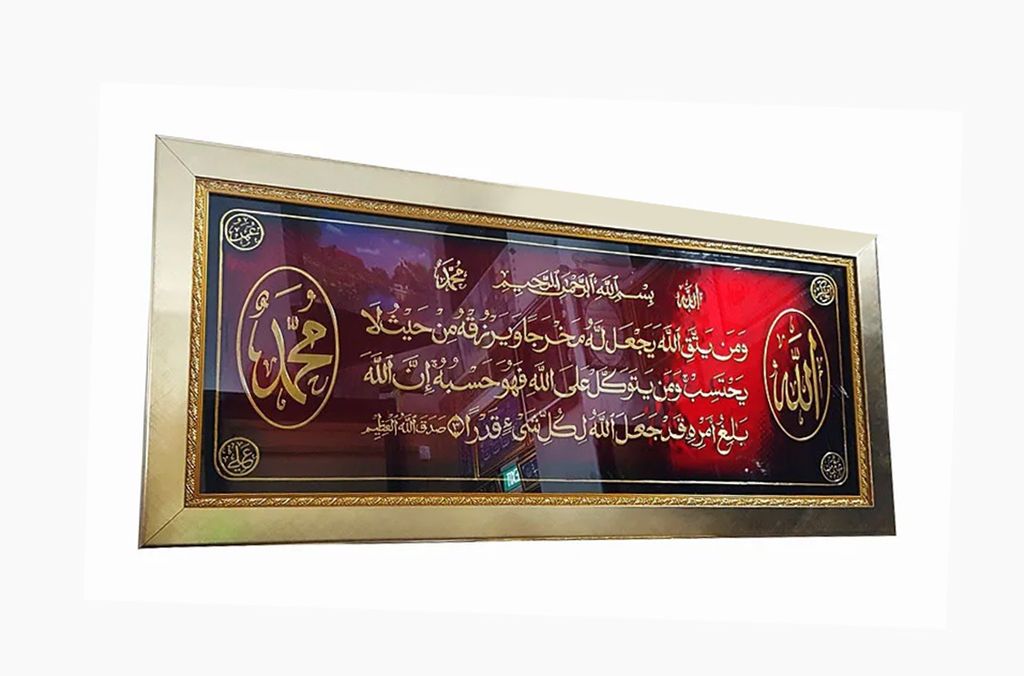 الله بسم الله الرحمن الرحيم محمد
وَمَن يَتَّقِ اللَّهَ يَجْعَل لَّهُ مَخْرَجًا وَيَرْزُقْهُ مِنْ حَيْثُ لَا
يَحْتَسِبُ وَمَن يَتَوَكَّلْ عَلَى اللَّهِ فَهُوَ حَسْبُهُ إِنَّ اللَّهَ
بَالِغُ أَمْرِهِ قَدْ جَعَلَ اللَّهُ لِكُلِّ شَيْءٍ قَدْرًا ٣ صدق الله العظيم
الله
محمد
عمر
علي